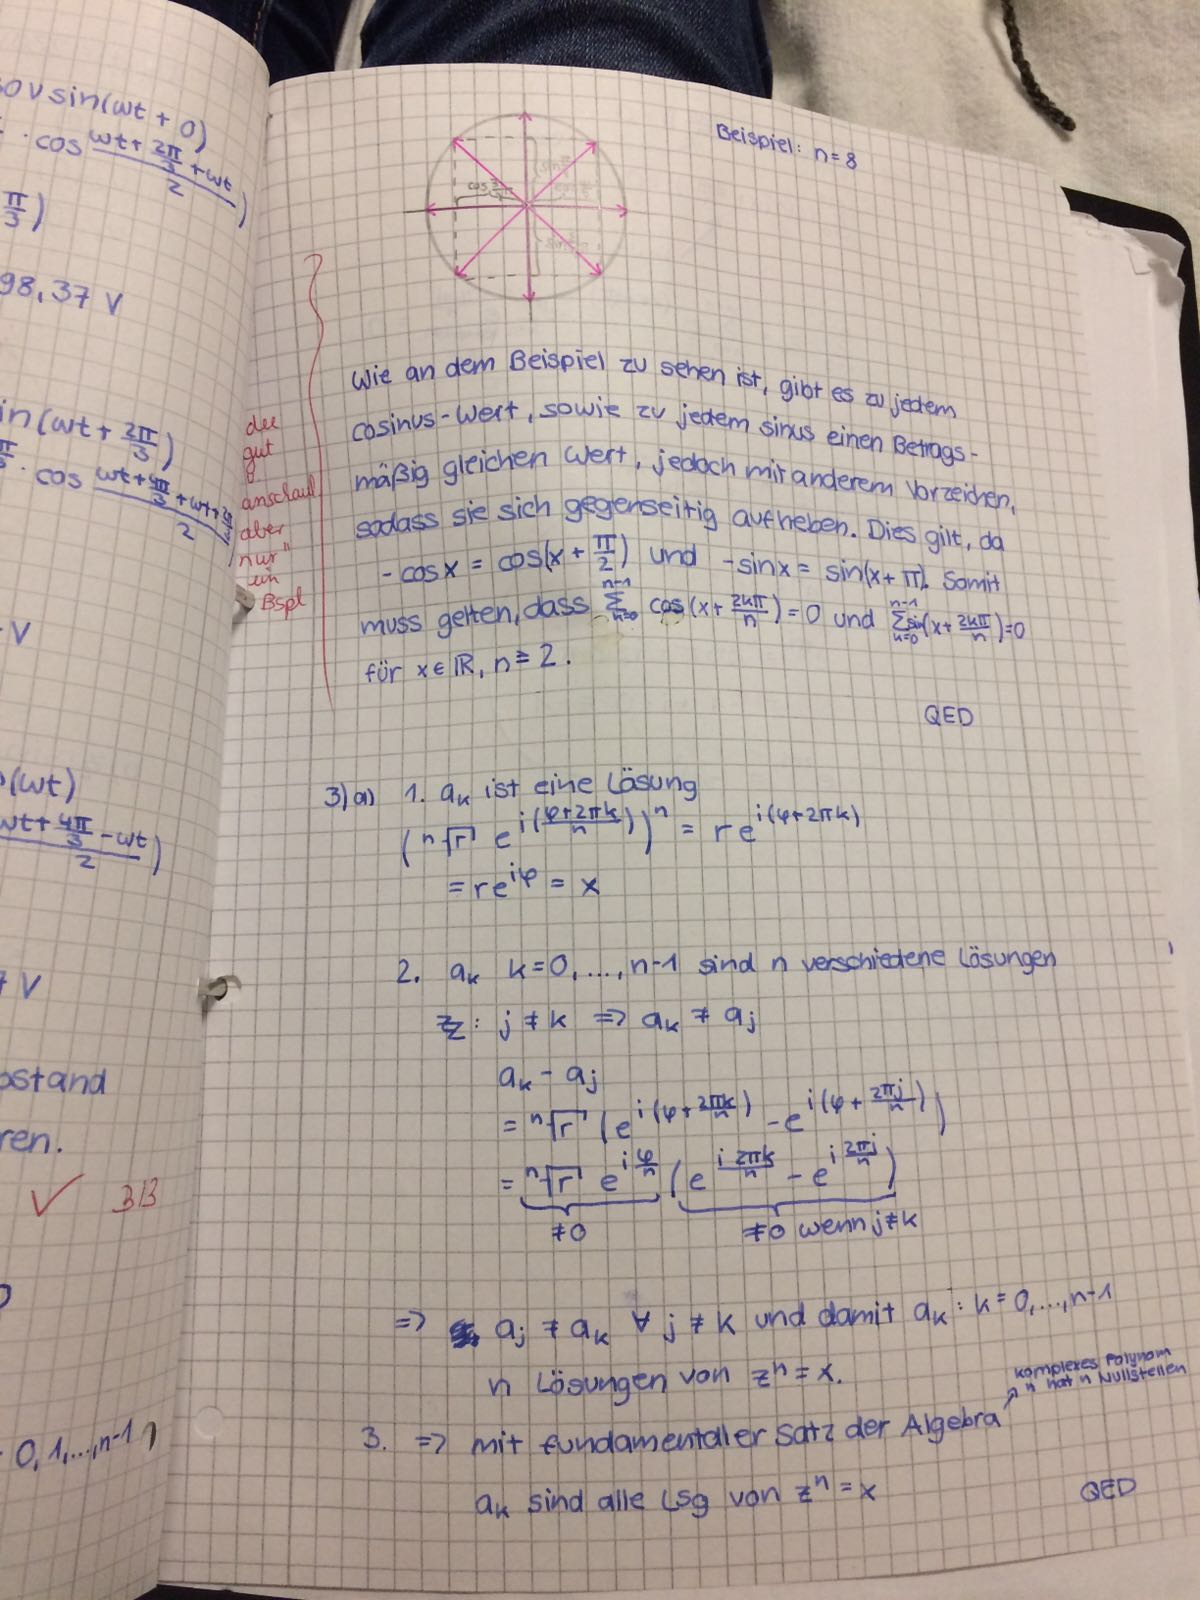 50V sin(ωt + 0)
· cos (ωt + 2π/3 + ωt)/2 )
π/3)
98,37 V
in(ωt + 2π/3)
· cos
2
V
(ωt)
ωt + 4π/3 - ωt
2 )
V
bstand
ren.
✓ 3/3
0,1,...,n-1
Beispiel: n=8
Wie an dem Beispiel zu sehen ist, gibt es zu jedem
cosinus-Wert, sowie zu jedem sinus einen Betrags-
mäßig gleichen Wert, jedoch mit anderem Vorzeichen,
sodass sie sich gegenseitig aufheben. Dies gilt, da
-cosx = cos(x + π/2) und -sinx = sin(x + π). Somit
muss gelten, dass Σ_{k=0}^{n-1} cos(x + 2kπ/n) = 0 und Σ_{k=0}^{n-1} sin(x + 2kπ/n) = 0
für x ∈ ℝ, n ≥ 2.
QED
gut
anschaul
aber
nur"
ein
Bspl
3)a) 1. a_k ist eine Lösung
(ⁿ√r e^{i((φ+2πk)/n)})^n = r e^{i(φ+2πk)}
= r e^{iφ} = x
2. a_k k=0,...,n-1 sind n verschiedene Lösungen
zz: j ≠ k ⇒ a_k ≠ a_j
a_k - a_j
= ⁿ√r (e^{i(φ + 2πk/n)} - e^{i(φ + 2πj/n)})
= ⁿ√r e^{i φ/n} (e^{i 2πk/n} - e^{i 2πj/n})
≠0 ≠0 wenn j≠k
⇒ a_j ≠ a_k ∀ j ≠ k und damit a_k : k=0,...,n-1
n Lösungen von z^n = x.
komplexes Polynom
n hat n Nullstellen
3. ⇒ mit fundamentaller Satz der Algebra
a_k sind alle Lsg von z^n = x
QED